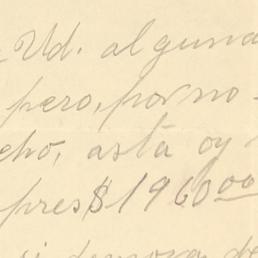 Ud. alguna
pero, por no
cho, asta oy
pres $1960.00
si demora de